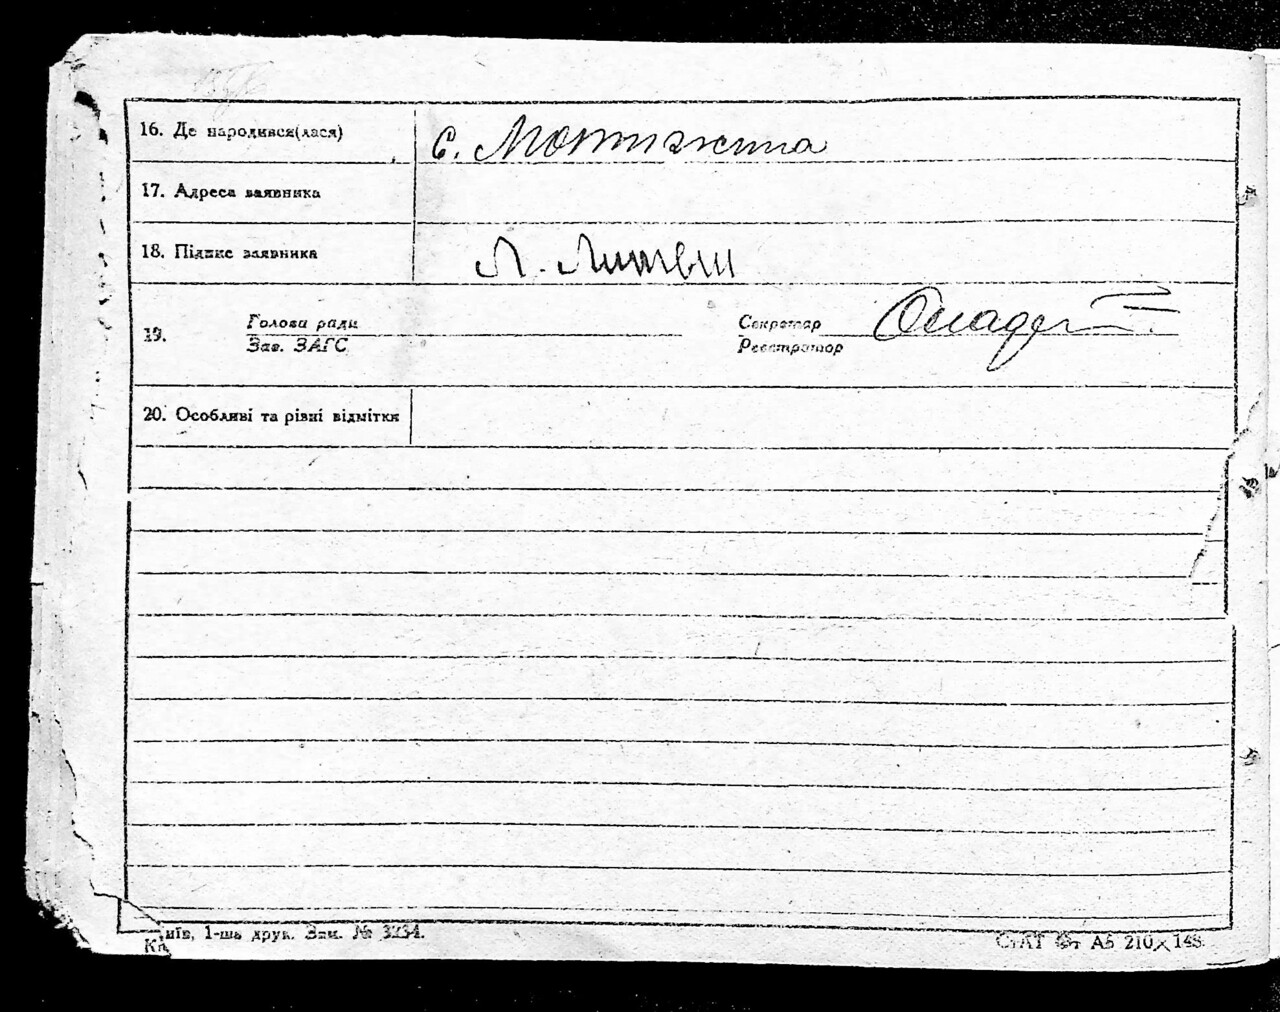 16. Де народився(лася) с. Мотижина
17. Адреса заявника
18. Підпис заявника Л. Литвин
19. Голова ради Секретар
Зав. ЗАГС Реєстратор
20. Особливі та рівні відмітки
Київ, 1-ша друк. Зам. № 3234. СтАТ Фт А5 210×148